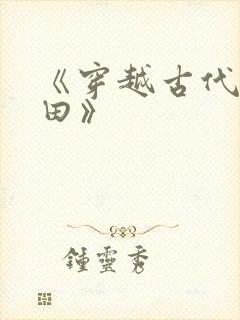 《穿越古代
田》
鍾靈秀